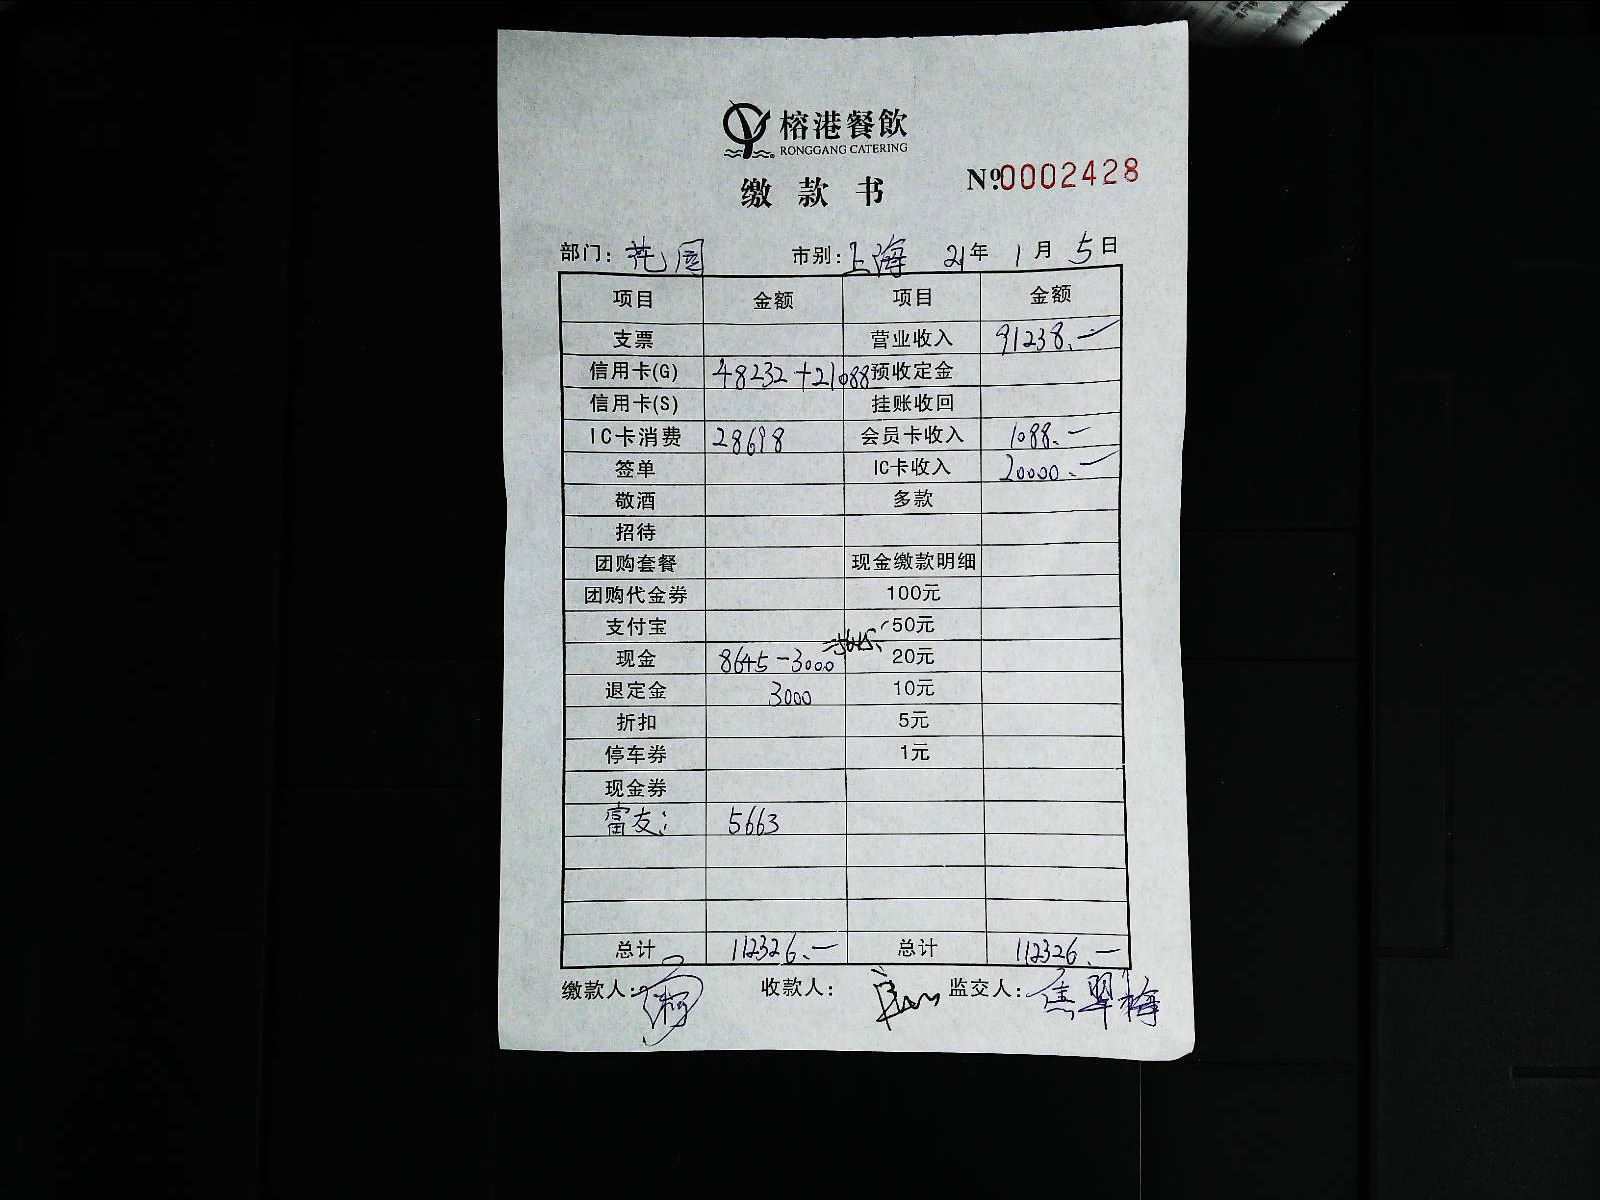 榕港餐飲
RONGGANG CATERING
缴款书 №0002428
部门: 花园 市别: 上海 21年 1月 5日
项目 金额 项目 金额
支票 营业收入 91238.一
信用卡(G) 48232+21088 预收定金
信用卡(S) 挂账收回
IC卡消费 28698 会员卡收入 1088.一
签单 IC卡收入 20000.一
敬酒 多款
招待
团购套餐 现金缴款明细
团购代金券 100元
支付宝 50元
现金 8645-3000 =5645. 20元
退定金 3000 10元
折扣 5元
停车券 1元
现金券
富友: 5663
总计 112326.一 总计 112326.一
缴款人: 收款人: 监交人: 焦翠梅